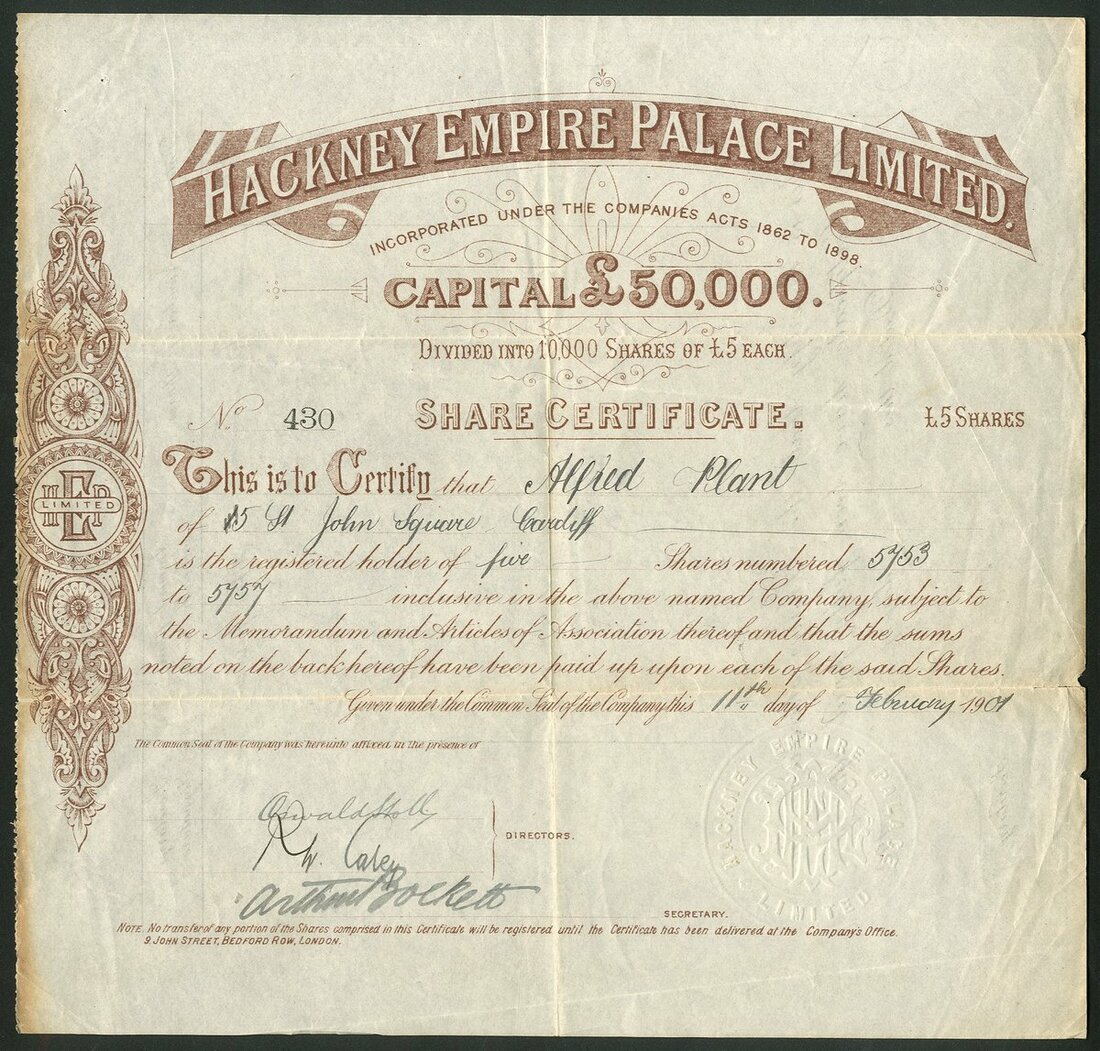 HACKNEY EMPIRE PALACE LIMITED.
INCORPORATED UNDER THE COMPANIES ACTS 1862 TO 1898.
CAPITAL £50,000.
DIVIDED INTO 10,000 SHARES OF £5 EACH.
No 430 SHARE CERTIFICATE. £5 SHARES
This is to Certify that Alfred Plant
of St John Square Cardiff
is the registered holder of five Shares numbered 5753
to 5757 inclusive in the above named Company, subject to
the Memorandum and Articles of Association thereof and that the sums
noted on the back hereof have been paid up upon each of the said Shares.
Given under the Common Seal of the Company this 11th day of February 1901
HEP
LIMITED
The Common Seal of the Company was hereunto affixed in the presence of
Oswald Stoll
DIRECTORS.
Arthur Bockett
SECRETARY.
HACKNEY EMPIRE PALACE
LIMITED
NOTE. No transfer of any portion of the Shares comprised in this Certificate will be registered until the Certificate has been delivered at the Company's Office.
9, JOHN STREET, BEDFORD ROW, LONDON.